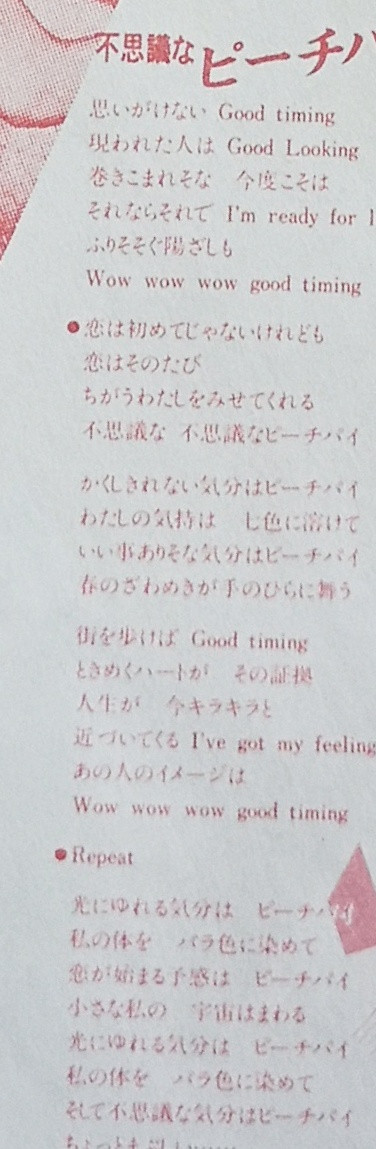 不思議なピーチパ
思いがけない Good timing
現われた人は Good Looking
巻きこまれそな 今度こそは
それならそれで I'm ready for l
ふりそそぐ陽ざしも
Wow wow wow good timing
●恋は初めてじゃないけれども
恋はそのたび
ちがうわたしをみせてくれる
不思議な 不思議なピーチパイ
かくしきれない気分はピーチパイ
わたしの気持は 七色に溶けて
いい事ありそな気分はピーチパイ
春のざわめきが手のひらに舞う
街を歩けば Good timing
ときめくハートが その証拠
人生が 今キラキラと
近づいてくる I've got my feeling
あの人のイメージは
Wow wow wow good timing
●Repeat
光にゆれる気分は ピーチパイ
私の体を バラ色に染めて
恋が始まる予感は ピーチパイ
小さな私の 宇宙はまわる
光にゆれる気分は ピーチパイ
私の体を バラ色に染めて
そして不思議な気分はピーチパイ
ちょっとも